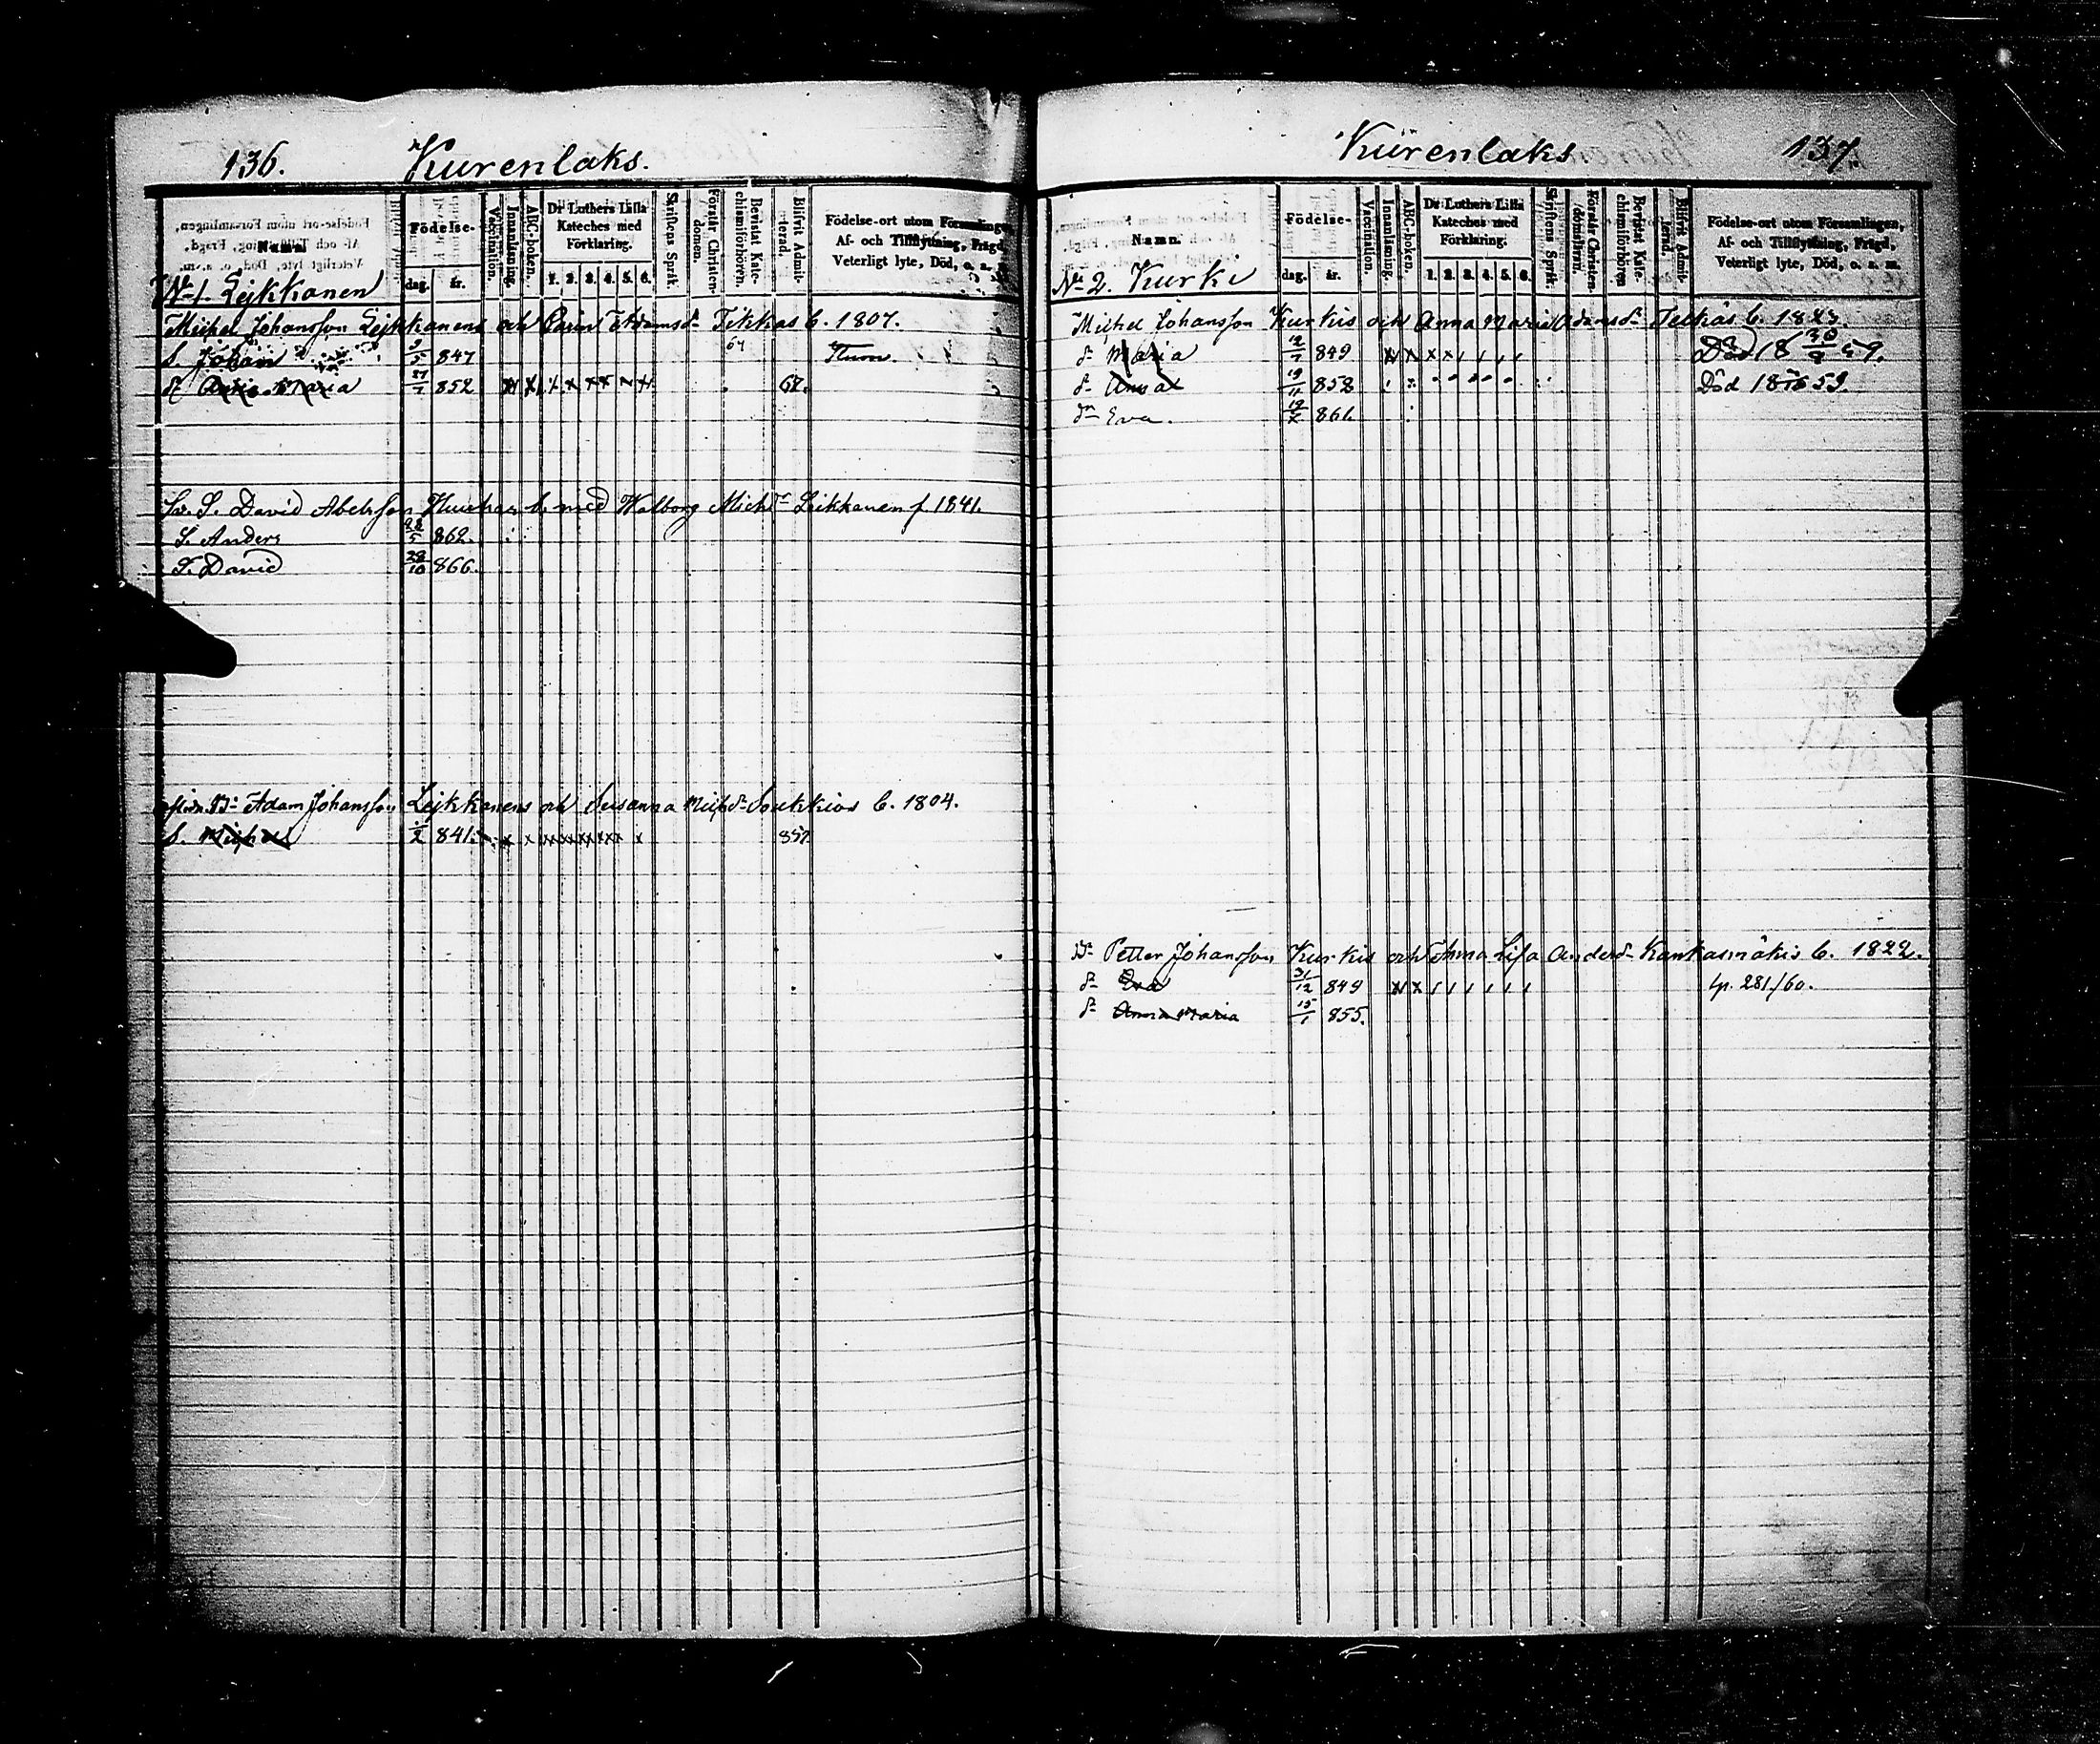 136.
Kurenlaks.
Namn.
Födelse-
dag.
år.
Vaccination.
Innanläsning.
ABC-boken.
Dr Luthers Lilla
Kateches med
Förklaring.
1. 2. 3. 4. 5. 6.
Skriftens Språk.
Förstår Christen-
domen.
Bevistat Kate-
chismiförhören.
Blifvit Admit-
terad.
Födelse-ort utom Församlingen,
Af- och Tillflyttning, Frägd,
Veterligt lyte, Död, o. s.
No 1. Lejkkanen
Michel Johansson Lejkkanens och Carin Adamsdr Tikkas b. 1807.
S. Johan 9/5 847 64
dr Anna Maria 27/7 852 67.
S. David Abelsson Huuhas b. med Walborg Michdr Leikkanen f 1841.
S. Anders 28/5 862.
S. David 28/10 866.
Adam Johansson Lejkkanens och Susanna Michdr Soukkios b. 1804.
S. Michel 1/2 841. 857
Kurenlaks
137.
Namn.
Födelse-
dag.
år.
Vaccination.
Innanläsning.
ABC-boken.
Dr Luthers Lilla
Kateches med
Förklaring.
1. 2. 3. 4. 5. 6.
Skriftens Språk.
Förstår Christen-
domsläran.
Bevistat Kate-
chismiförhören
Blifvit Admit-
terad.
Födelse-ort utom Församlingen,
Af- och Tillflyttning, Frägd,
Veterligt lyte, Död, o. s. m.
No 2. Kurki
Michel Johansson Kurkis och Anna Maria Adamsdr Teckäs b. 1823.
dr Maria 12/7 849 Död 18 30/8 59.
dr Anna 19/11 852 Död 18 59.
dr Eva. 861.
Petter Johansson Kurkis och Anna Lisa Andersdr Kankasmäkis b. 1822.
dr Eva 31/12 849 281/60.
dr Anna Maria 15/1 855.